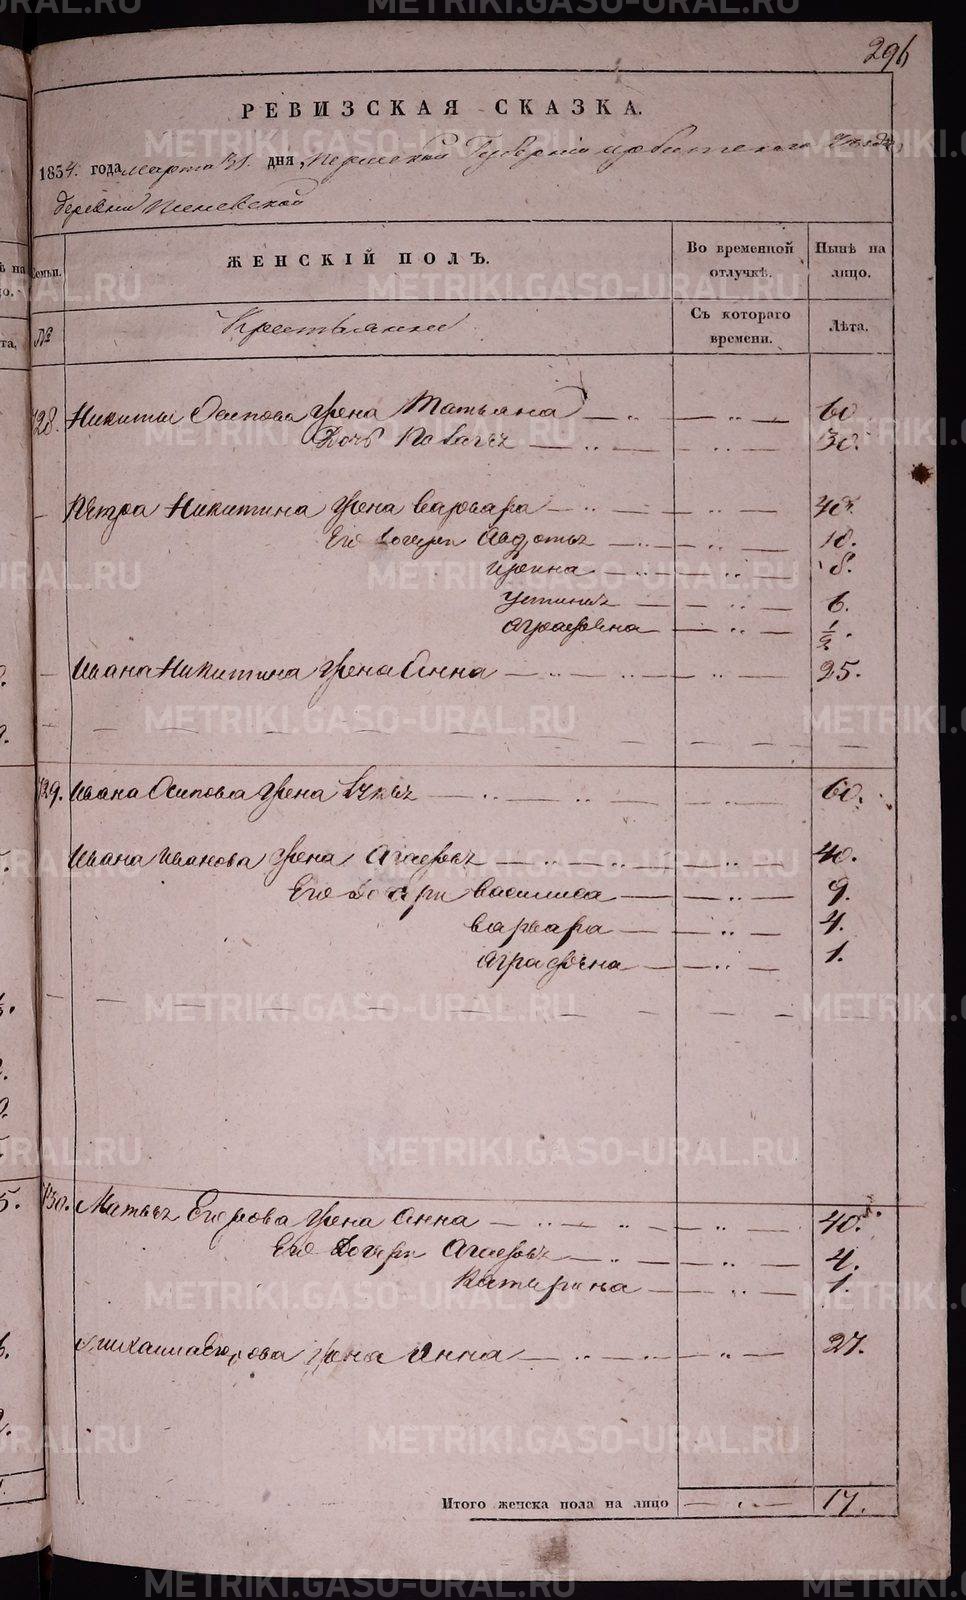 296
РЕВИЗСКАЯ СКАЗКА.
1834 года марта 31. дня, Пермской Губернии Ирбитского Уезда,
деревни
Семьи. ЖЕНСКІЙ ПОЛЪ. Во временной отлучкѣ. Нынѣ на лицо.
№ Крестьянки Съ котораго времени. Лѣта.
128. Никиты Осипова жена Татьяна — „ — „ — 60
Дочь — „ — „ — 30.
Петра Никитина жена Варвара — „ — „ — 40.
Его дочери Авдотья — „ — 10.
Ирина — „ — 8.
Устинья — „ — 6.
Аграфена — „ — 1/2.
Ивана Никитина жена Анна — „ — „ — 25.
129. Ивана Осипова жена — „ — „ — 60.
Ивана Иванова жена Агафья — „ — „ — 40.
Его дочери Василиса — „ — 9.
Варвара — „ — 4.
Аграфена — „ — 1.
130. Матвея Егорова жена Анна — „ — „ — 40.
Его дочери Агафья — „ — 4.
Катерина — „ — 1.
Михаила Егорова жена Анна — „ — „ — 27.
Итого женска пола на лицо — „ — 17.
METRIKI.GASO-URAL.RU